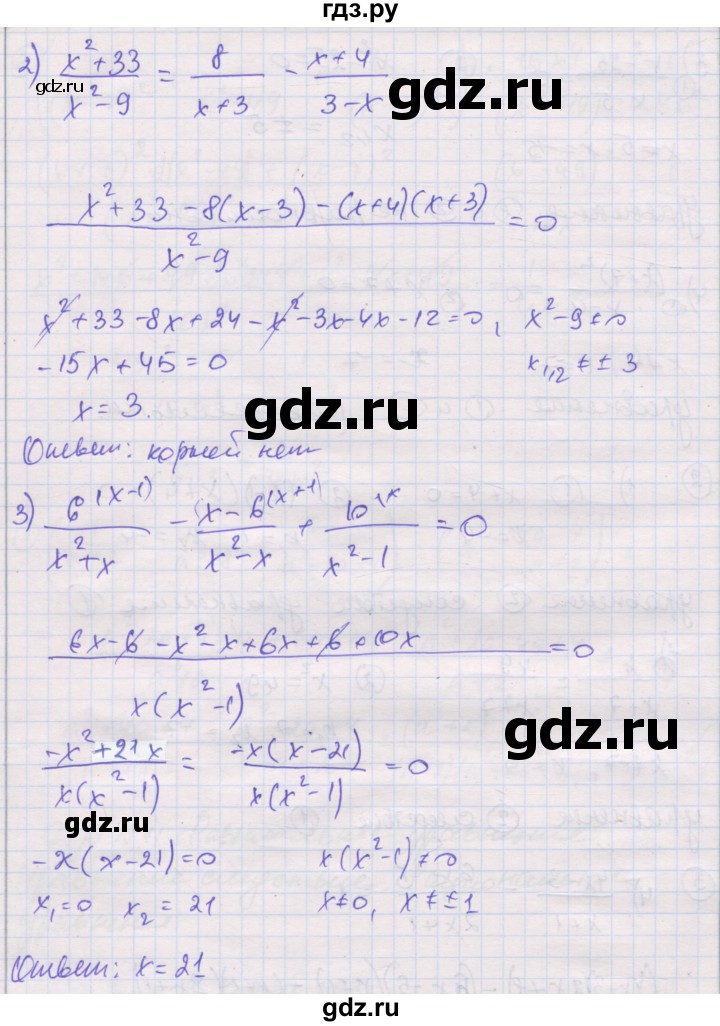 гдз.ру
2) (x² + 33)/(x² - 9) = 8/(x + 3) - (x + 4)/(3 - x)
gdz.ru
gdz.ru
(x² + 33 - 8(x - 3) - (x + 4)(x + 3))/(x² - 9) = 0
x² + 33 - 8x + 24 - x² - 3x - 4x - 12 = 0, x² - 9 ≠ 0
- 15x + 45 = 0 x₁,₂ ≠ ± 3
x = 3.
gdz.ru
Ответ: корней нет
3) 6^(x-1)/(x² + x) - (x - 6^(x+1))/(x² - x) + 10^(x)/(x² - 1) = 0
gdz.ru
(6x - 6 - x² - x + 6x + 6 + 10x)/(x(x² - 1)) = 0
gdz.ru
(-x² + 21x)/(x(x² - 1)) = (-x(x - 21))/(x(x² - 1)) = 0
gdz.ru
- x(x - 21) = 0 x(x² - 1) ≠ 0
x₁ = 0 x₂ = 21 x ≠ 0, x ≠ ± 1
gdz.ru
Ответ: x = 21
gdz.ru